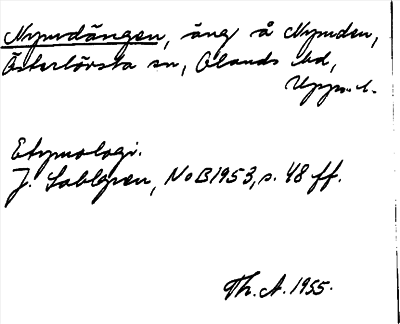 Nymdängen, äng å Nymden,
Österlövsta sn, Olands hd,
Upps. l.
Etymologi.
J. Sahlgren, NoB 1953, s. 48 ff.
Th. A. 1955.